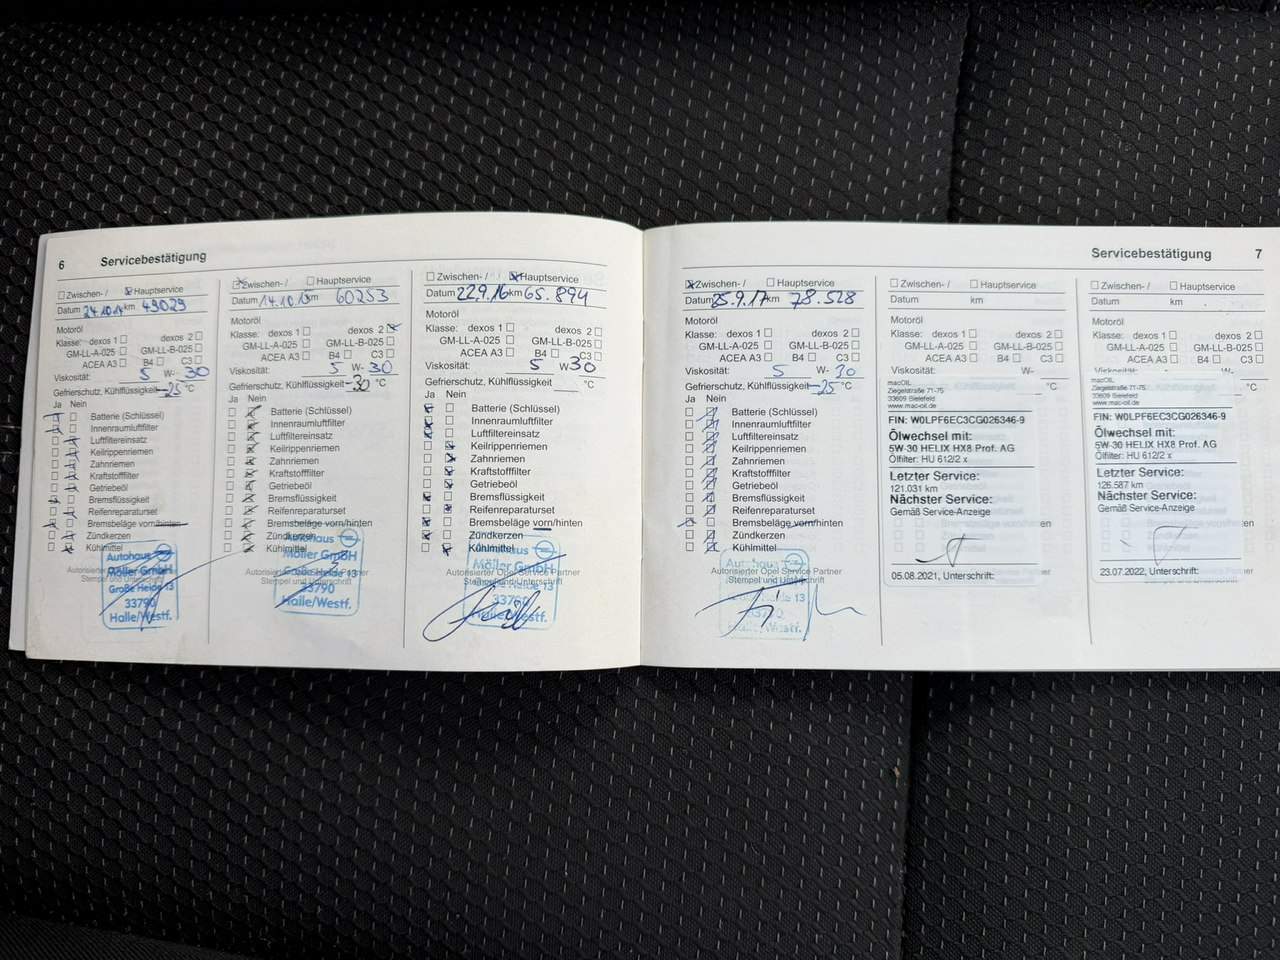 6 Servicebestätigung
Zwischen- / Hauptservice
Datum 24.10.14 km 49029
Motoröl
Klasse: dexos 1 dexos 2
GM-LL-A-025 GM-LL-B-025
ACEA A3 B4 C3
Viskosität: 5 W- 30
Gefrierschutz, Kühlflüssigkeit -25 °C
Ja Nein
Batterie (Schlüssel)
Innenraumluftfilter
Luftfiltereinsatz
Keilrippenriemen
Zahnriemen
Kraftstofffilter
Getriebeöl
Bremsflüssigkeit
Reifenreparaturset
Bremsbeläge vorn/hinten
Zündkerzen
Kühlmittel
Autohaus
Möller GmbH
Große Heide 13
33790
Halle/Westf.
Zwischen- / Hauptservice
Datum 14.10.15 km 60253
Motoröl
Klasse: dexos 1 dexos 2
GM-LL-A-025 GM-LL-B-025
ACEA A3 B4 C3
Viskosität: 5 W- 30
Gefrierschutz, Kühlflüssigkeit -30 °C
Ja Nein
Batterie (Schlüssel)
Innenraumluftfilter
Luftfiltereinsatz
Keilrippenriemen
Zahnriemen
Kraftstofffilter
Getriebeöl
Bremsflüssigkeit
Reifenreparaturset
Bremsbeläge vorn/hinten
Zündkerzen
Kühlmittel
Autohaus
Möller GmbH
Autorisierter Opel Service Partner
Stempel und Unterschrift
Große Heide 13
33790
Halle/Westf.
Zwischen- / Hauptservice
Datum 22.9.16 km 65.894
Motoröl
Klasse: dexos 1 dexos 2
GM-LL-A-025 GM-LL-B-025
ACEA A3 B4 C3
Viskosität: 5 W 30
Gefrierschutz, Kühlflüssigkeit °C
Ja Nein
Batterie (Schlüssel)
Innenraumluftfilter
Luftfiltereinsatz
Keilrippenriemen
Zahnriemen
Kraftstofffilter
Getriebeöl
Bremsflüssigkeit
Reifenreparaturset
Bremsbeläge vorn/hinten
Zündkerzen
Kühlmittel
Autohaus
Möller GmbH
Autorisierter Opel Service Partner
Stempel und Unterschrift
33790
Halle/Westf.
Servicebestätigung 7
Zwischen- / Hauptservice
Datum 25.9.17 km 78.528
Motoröl
Klasse: dexos 1 dexos 2
GM-LL-A-025 GM-LL-B-025
ACEA A3 B4 C3
Viskosität: 5 W- 30
Gefrierschutz, Kühlflüssigkeit -25 °C
Ja Nein
Batterie (Schlüssel)
Innenraumluftfilter
Luftfiltereinsatz
Keilrippenriemen
Zahnriemen
Kraftstofffilter
Getriebeöl
Bremsflüssigkeit
Reifenreparaturset
Bremsbeläge vorn/hinten
Zündkerzen
Kühlmittel
Autorisierter Opel Service Partner
Stempel und Unterschrift
Halle/Westf.
Zwischen- / Hauptservice
Datum km
Motoröl
Klasse: dexos 1 dexos 2
GM-LL-A-025 GM-LL-B-025
ACEA A3 B4 C3
Viskosität: W-
°C
macOIL
Ziegelstraße 71-75
33609 Bielefeld
www.mac-oil.de
FIN: W0LPF6EC3CG026346-9
Ölwechsel mit:
5W-30 HELIX HX8 Prof. AG
Ölfilter: HU 612/2 x
Letzter Service:
121.031 km
Nächster Service:
Gemäß Service-Anzeige
05.08.2021, Unterschrift:
Zwischen- / Hauptservice
Datum km
Motoröl
Klasse: dexos 1 dexos 2
GM-LL-A-025 GM-LL-B-025
ACEA A3 B4 C3
Viskosität: W-
°C
macOIL
Ziegelstraße 71-75
33609 Bielefeld
www.mac-oil.de
FIN: W0LPF6EC3CG026346-9
Ölwechsel mit:
5W-30 HELIX HX8 Prof. AG
Ölfilter: HU 612/2 x
Letzter Service:
126.587 km
Nächster Service:
Gemäß Service-Anzeige
23.07.2022, Unterschrift: